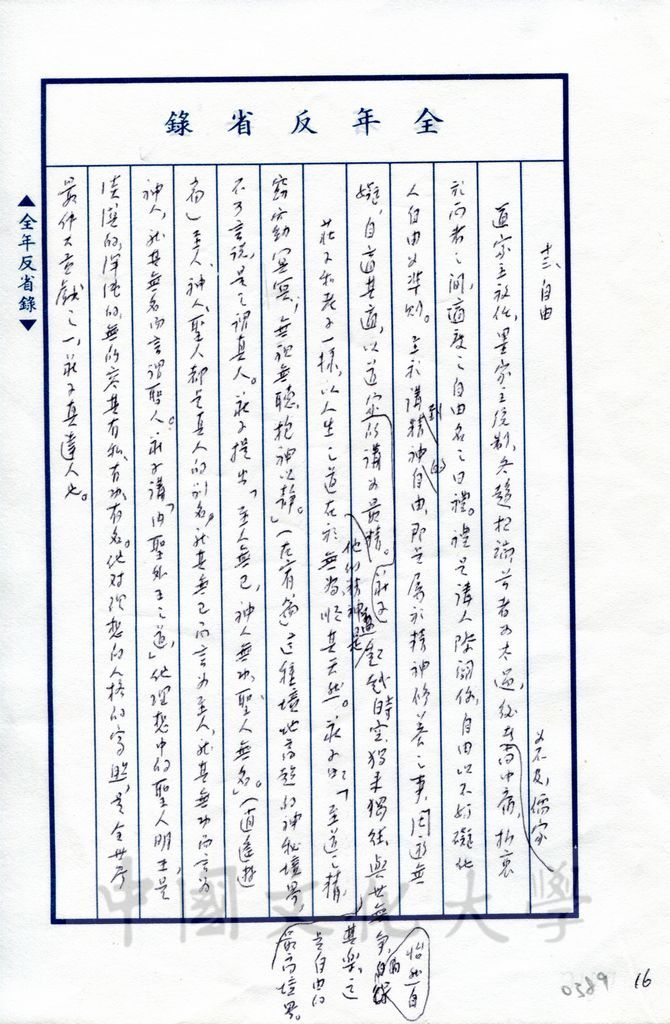 全年反省錄
十三、自由
道家主放任，墨家主統制，各趨極端，前者為太過，後者為不及，儒家
於兩者之間，適度之自由名之曰禮。禮是講人際關係，自由以不妨礙他
人自由為準則。至於講到精神的自由，即是屬於精神修養之事，周遊無
礙，自適其適，以道家的講為最精。莊子
他們精神是超越時空，獨來獨往，與世無爭，怡然自得
莊子和老子一樣，以人生之道在於無為，順其天然。莊子曰：「至道之精，
窈窈冥冥，無視無聽，抱神以靜。」（在宥篇）這種境地高超的神秘境界，
其樂
是自由的最高境界。
不可言說，是之謂真人。莊子提出「至人無己，神人無功，聖人無名。」（逍遙遊
篇）至人、神人、聖人都是真人的別名，就其無己而言為至人，就其無功而言為
神人，就其無名而言謂聖人。莊子講「內聖外王之道」他理想中的聖人明王是
的，無的
其有私、有功、有名。他對理想的人格的
是全世界
最偉大貢獻之一，莊子真達人也。
▲全年反省錄▼
中國文化大學
16